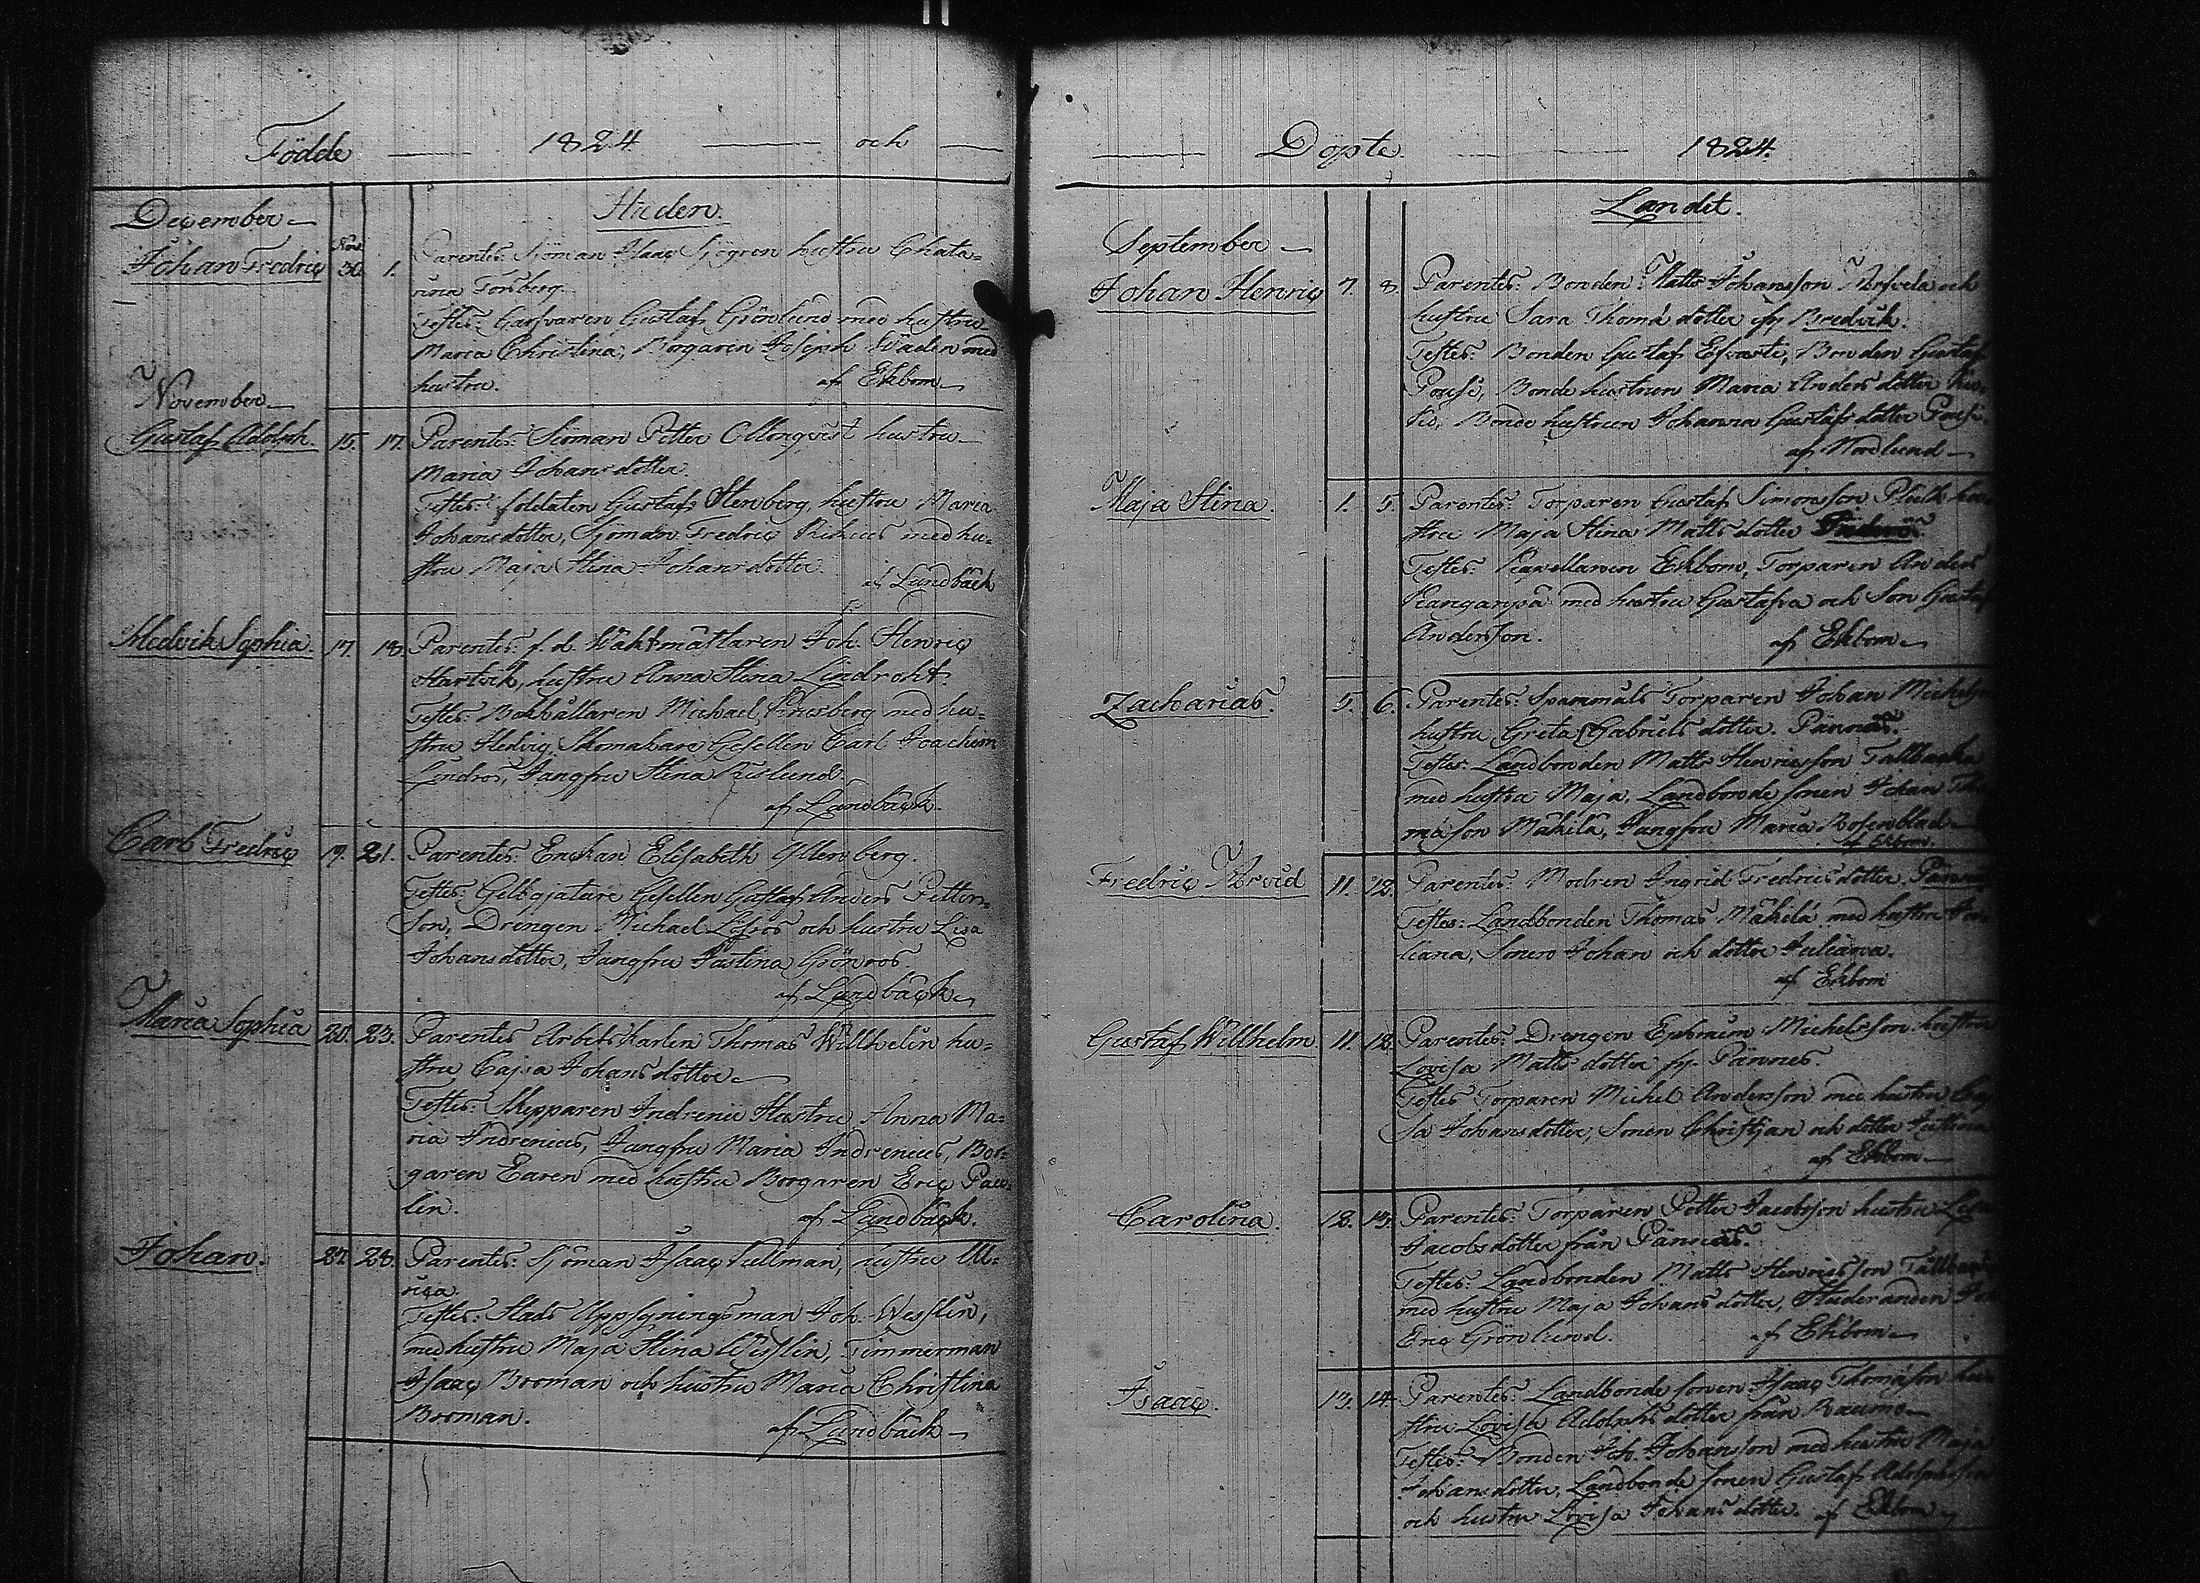 Födde — 1824 — och —
December — Staden.
Johan Fredric Nov. 30. 1. Parentes: Sjöman Isaac Sjögren hustru Chata=
rina Forsberg.
Testes: Garfvaren Gustaf Grönlund med hustru
Maria Christina, Borgaren Joseph Wadén med
hustru. af Ekbom —
November —
Gustaf Adolph. 15. 17. Parentes: Siöman Petter Ollonqvist hustru
Maria Johansdotter.
Testes: Soldaten Gustaf Stenberg, hustru Maria
Johansdotter, Sjöman Fredric med hu=
stru Maja Stina Johansdotter.
af Lundbäck
Hedvik Sophia. 17. 18. Parentes: f. d. Wäktmästaren Joh. Henric
Hartvik, hustru Anna Stina Lindroht.
Testes: Bokhållaren Michael med hu=
stru Hedvig, Skomakare Gesellen Carl Joachim
Lindros, Jungfru Stina
af Lundbäck.
Carl Fredric 19. 21. Parentes: Enckan Elisabeth Gyllenberg.
Testes: Gelbgjutare Gesellen Gustaf Anders Petters=
son, Drengen Michael Löfros och hustru Lisa
Johansdotter, Jungfru Justina Grönros.
af Lundbäck
Maria Sophia 20. 23. Parentes Arbetskarlen Thomas Willhelin hu=
stru Cajsa Johansdotter —
Testes: Skepparen Indrenii Hustru Anna Ma=
ria Indrenius, Jungfru Maria Indrenius, Bor=
garen Earen med hustru Borgaren Eric Pau=
lin. af Lundbäck.
Johan. 27. 28. Parentes: Sjöman Isaac Sullman, hustru Ul=
rica.
Testes: Stads Uppsyningsman Joh. Wesslin,
med hustru Maja Stina Wesslin, Timmerman
Isaac Broman och hustru Maria Christina
Broman. af Lundbäck —
— Döpte. — 1824.
Landet.
September —
Johan Henric 7. 8. Parentes: Bonden Matts Johansson Arfvela och
hustru Sara Thomädotter ifr Bredvik.
Testes: Bonden Gustaf Bonden Gustaf
Bonde hustrun Maria Andersdotter
Bonde hustrun Johanna Gustafsdotter
af Nordlund —
Maja Stina. 1. 5. Parentes: Torparen Gustaf Simonsson hu
stru Maja Stina Mattsdotter
Testes: Capellanen Ekbom, Torparen Anders
Kangarysä med hustru Gustafva och Son Gustaf
Andersson. af Ekbom —
Zacharias. 5. 6. Parentes: Spannmåls Torparen Johan Michels
hustru Greta Gabrielsdotter. Pännäs.
Testes: Landbonden Matts Henricsson Tallbacka
med hustru Maja, Landbonde sonen Johan Tho
mäson Mäkilä, Jungfru Maria Rosenblad —
af Ekbom
Fredric Arvid 11. 12. Parentes: Modren Ingrid Fredricsdotter.
Testes: Landbonden Thomas Mäkilä med hustru Ju
liana, Sonen Johan och dotter Juliana.
af Ekbom
Gustaf Willhelm 11. 12. Parentes: Drengen Ephraim Michelsson hustru
Lovisa Mattsdotter fr. Pännäs.
Testes Torparen Michel Andersson med hustru Caj
sa Johansdotter, Sonen Christjan och dotter Justina
af Ekbom —
Carolina. 12. 13. Parentes: Torparen Petter Jacobsson hustru Lisa
Jacobsdotter från Pännäs.
Testes: Landbonden Matts Henricsson Tallbacka
med hustru Maja Johansdotter, Studeranden
Eric Grönlund. af Ekbom —
Isaac. 13. 14. Parentes: Landbonde sonen Isaac Thomäson hu
stru Lovisa Adolphsdotter från Raumo —
Testes: Bonden Joh. Johansson med hustru Maja
Johansdotter, Landbonde sonen Gustaf Adolphsson
och hustru Lovisa Johansdotter. af Ekbom